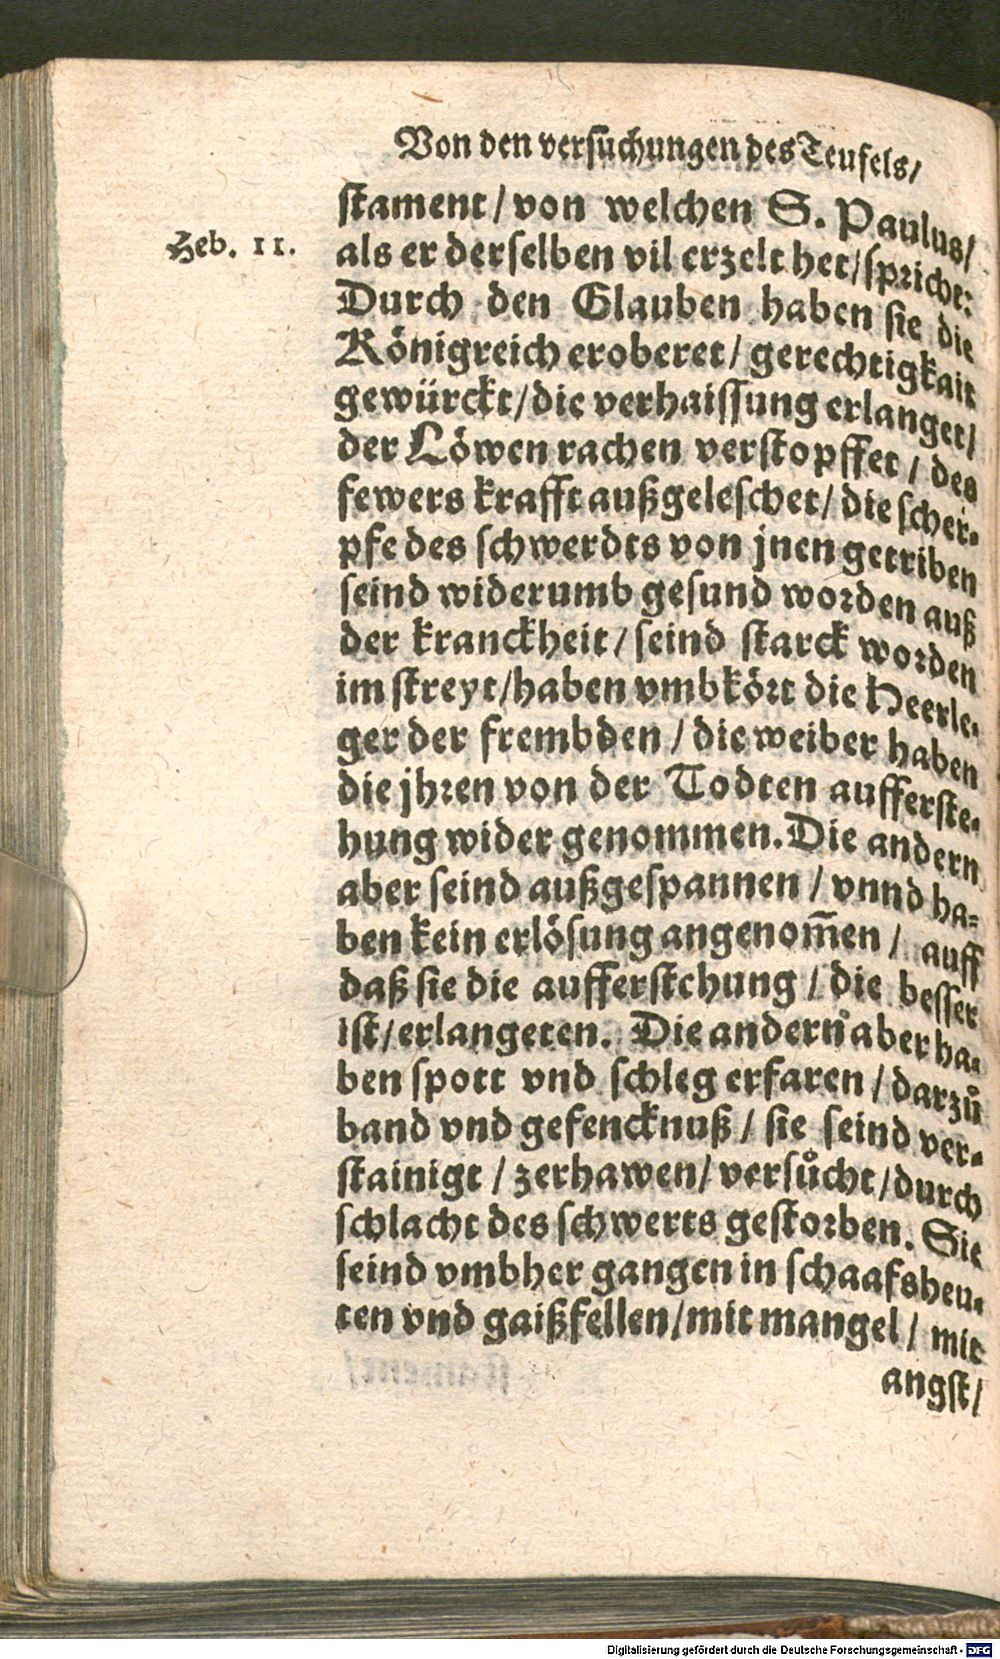 Von den versuchungen des Teufels/
stament/von welchen S. Paulus/
Heb. 11.
als er derselben vil erzelt het/spricht:
Durch den Glauben haben sie die
Königreich eroberet/gerechtigkait
gewürckt/die verhaissung erlanget/
der Löwen rachen verstopffet/des
fewers krafft außgeleschet/die scher-
pfe des schwerdts von jnen getriben
seind widerumb gesund worden auß
der kranckheit/seind starck worden
im streyt/haben vmbkört die Heerle-
ger der frembden/die weiber haben
die jhren von der Todten aufferste-
hung wider genommen. Die andern
aber seind außgespannen/vnnd ha-
ben kein erlösung angenom̄en/auff
daß sie die aufferstehung/die besser
ist/erlangeten. Die andern aber ha-
ben spott vnd schleg erfaren/darzů
band vnd gefencknuß/sie seind ver-
stainigt/zerhawen/versůcht/durch
schlacht des schwerts gestorben. Sie
seind vmbher gangen in schaafsheu-
ten vnd gaißfellen/mit mangel/mit
angst/
Digitalisierung gefördert durch die Deutsche Forschungsgemeinschaft - DFG